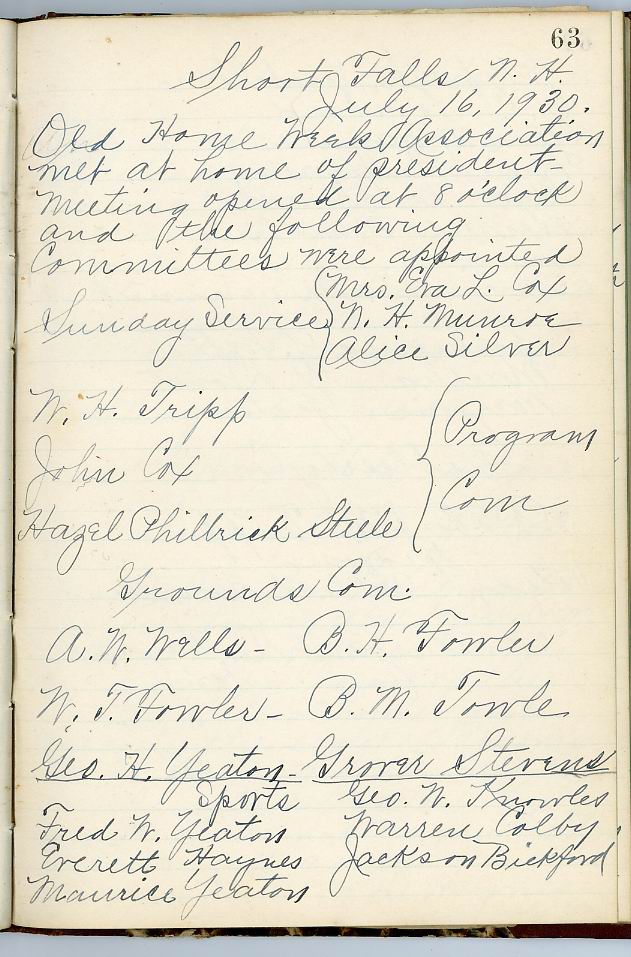 63
Short Falls N. H.
July 16, 1930.
Old Home Week Association
met at home of president-
meeting opened at 8 o'clock
and the following
Committees were appointed
Sunday Service { Mrs. Eva L. Cox
N. H. Munroe
Alice Silver
W. H. Tripp
John Cox
Hazel Philbrick Steele
{ Program
Com
Grounds Com.
A. W. Wells - B. H. Fowler
W. T. Fowler - B. M. Towle
Geo. H. Yeaton - Grover Stevens
Sports Geo. W. Knowles
Fred W. Yeaton Warren Colby
Everett Haynes Jackson Bickford
Maurice Yeaton